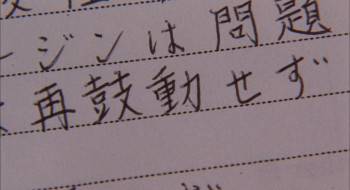 ージンは問題
再鼓動せず